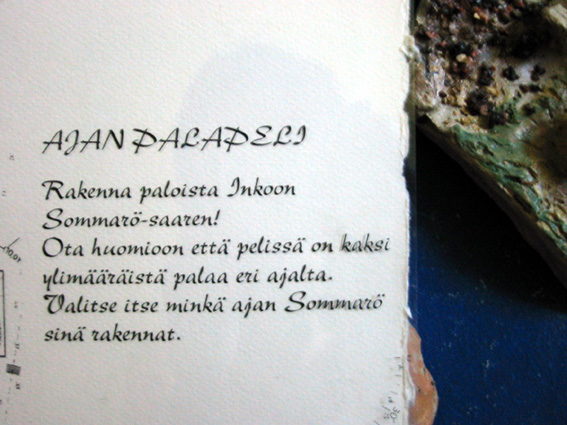 AJAN PALAPELI
Rakenna paloista Inkoon
Sommarö-saaren!
Ota huomioon että pelissä on kaksi
ylimääräistä palaa eri ajalta.
Valitse itse minkä ajan Sommarö
sinä rakennat.